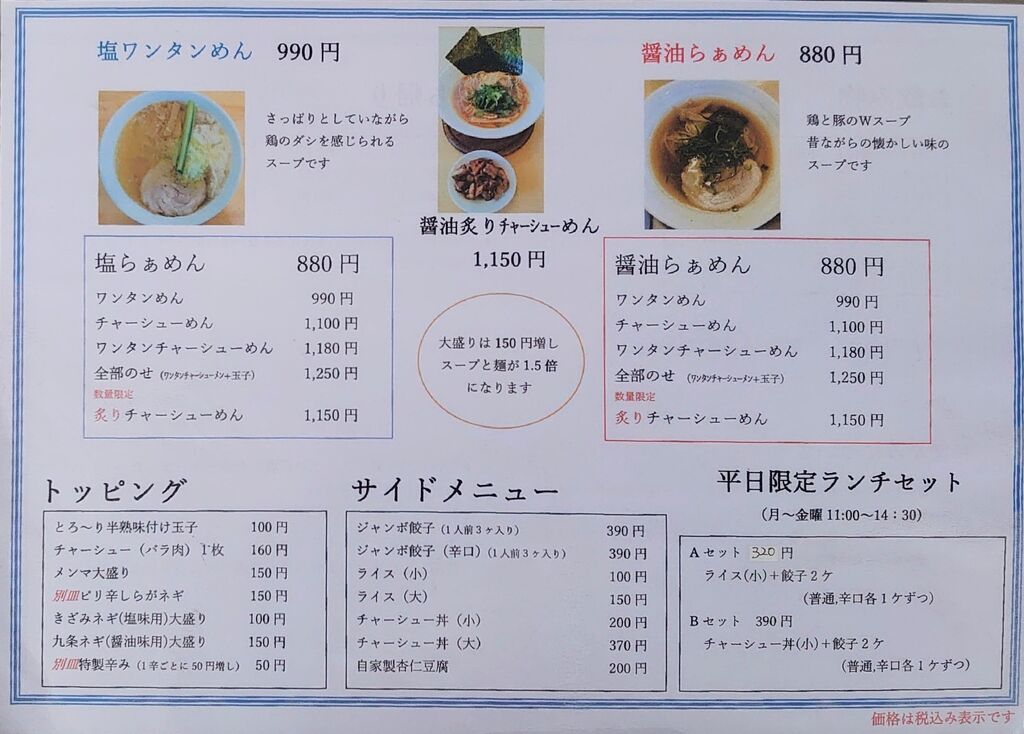 塩ワンタンめん 990円
さっぱりとしていながら
鶏のダシを感じられる
スープです
醤油炙りチャーシューめん
1,150円
醤油らぁめん 880円
鶏と豚のWスープ
昔ながらの懐かしい味の
スープです
塩らぁめん 880円
ワンタンめん 990円
チャーシューめん 1,100円
ワンタンチャーシューめん 1,180円
全部のせ (ワンタンチャーシューメン+玉子) 1,250円
数量限定
炙りチャーシューめん 1,150円
大盛りは150円増し
スープと麺が1.5倍
になります
醤油らぁめん 880円
ワンタンめん 990円
チャーシューめん 1,100円
ワンタンチャーシューめん 1,180円
全部のせ (ワンタンチャーシューメン+玉子) 1,250円
数量限定
炙りチャーシューめん 1,150円
トッピング
とろ〜り半熟味付け玉子 100円
チャーシュー(バラ肉) 1枚 160円
メンマ大盛り 150円
別皿ピリ辛しらがネギ 150円
きざみネギ(塩味用)大盛り 100円
九条ネギ(醤油味用)大盛り 150円
別皿特製辛み (1辛ごとに50円増し) 50円
サイドメニュー
ジャンボ餃子 (1人前3ヶ入り) 390円
ジャンボ餃子(辛口) (1人前3ヶ入り) 390円
ライス(小) 100円
ライス(大) 150円
チャーシュー丼(小) 200円
チャーシュー丼(大) 370円
自家製杏仁豆腐 200円
平日限定ランチセット
(月〜金曜 11:00〜14:30)
Aセット 320円
ライス(小)+餃子2ケ
(普通,辛口各1ケずつ)
Bセット 390円
チャーシュー丼(小)+餃子2ケ
(普通,辛口各1ケずつ)
価格は税込み表示です